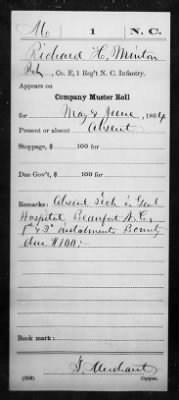 M | 1 | N. C.
Richard H. Minton
Pvt, Co. E, 1 Reg't N. C. Infantry.
Appears on
Company Muster Roll
for May & June, 1864
Present or absent Absent
Stoppage, $ 100 for
Due Gov't, $ 100 for
Remarks: Absent sick in Genl
Hospital Beaufort N.C.
1st & 2d instalments Bounty
due $100.
Book mark:
(358) Copyist.